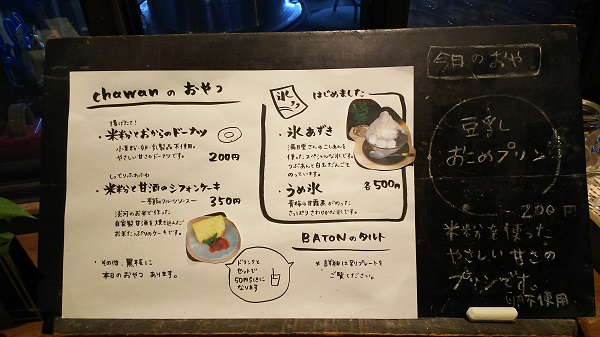 chawan の おやつ
揚げたて!
・米粉とおからのドーナツ
小麦粉・卵・乳製品不使用。
やさしい甘さのドーナツです。
200円
しっとりふわふわ
・米粉と甘酒のシフォンケーキ
〜季節のフルーツソース〜
350円
自家製甘酒を焼き込んだ
お米たっぷりのケーキです。
・その他、黒板に
本日のおやつ あります。
ドリンクと
セットで
50円引きに
なります
氷
はじめました
・氷あずき
満月堂さんのこしあんを
使ったスペシャルな氷です。
つぶあんと白玉だんごも
のっています。
・うめ氷
各500円
青梅の甘露煮がのった
さっぱりさわやかな氷です。
BATONのタルト
＊詳細は別プレートを
ご覧ください。
今日のおやつ
豆乳
おこめプリン
200円
米粉を使った
やさしい甘さの
プリンです。
卵不使用